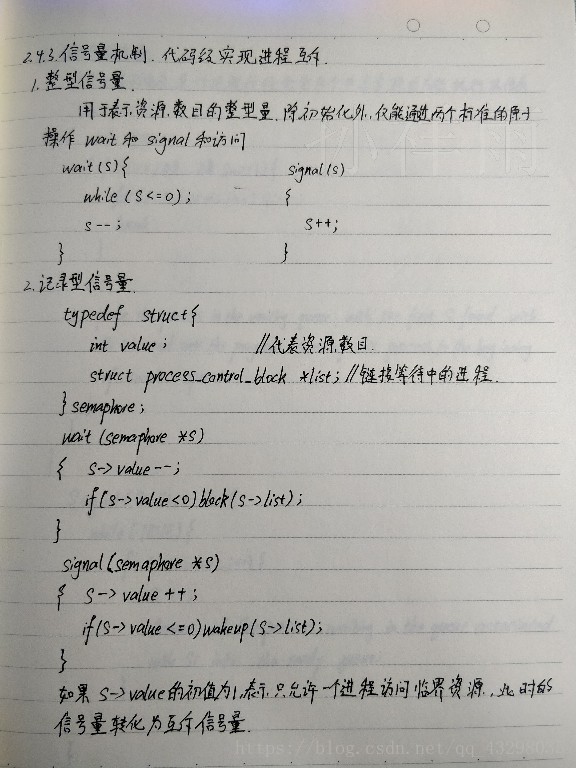 2.4.3.信号量机制.代码级实现进程互斥.
1.整型信号量.
用于表示资源数目的整型量.除初始化外,仅能通过两个标准的原子
操作 wait 和 signal 和访问
wait(s){ signal(s)
while (s<=0); {
s--; s++;
} }
2.记录型信号量.
typedef struct{
int value; //代表资源数目.
struct process_control_block *list; //链接等待中的进程.
} semaphore;
wait (semaphore *s)
{ s->value--;
if(s->value<0)block(s->list);
}
signal(semaphore *s)
{ s->value++;
if(s->value<=0)wakeup(s->list);
}
如果 s->value的初值为1,表示只允许一个进程访问临界资源,此时的
信号量转化为互斥信号量.